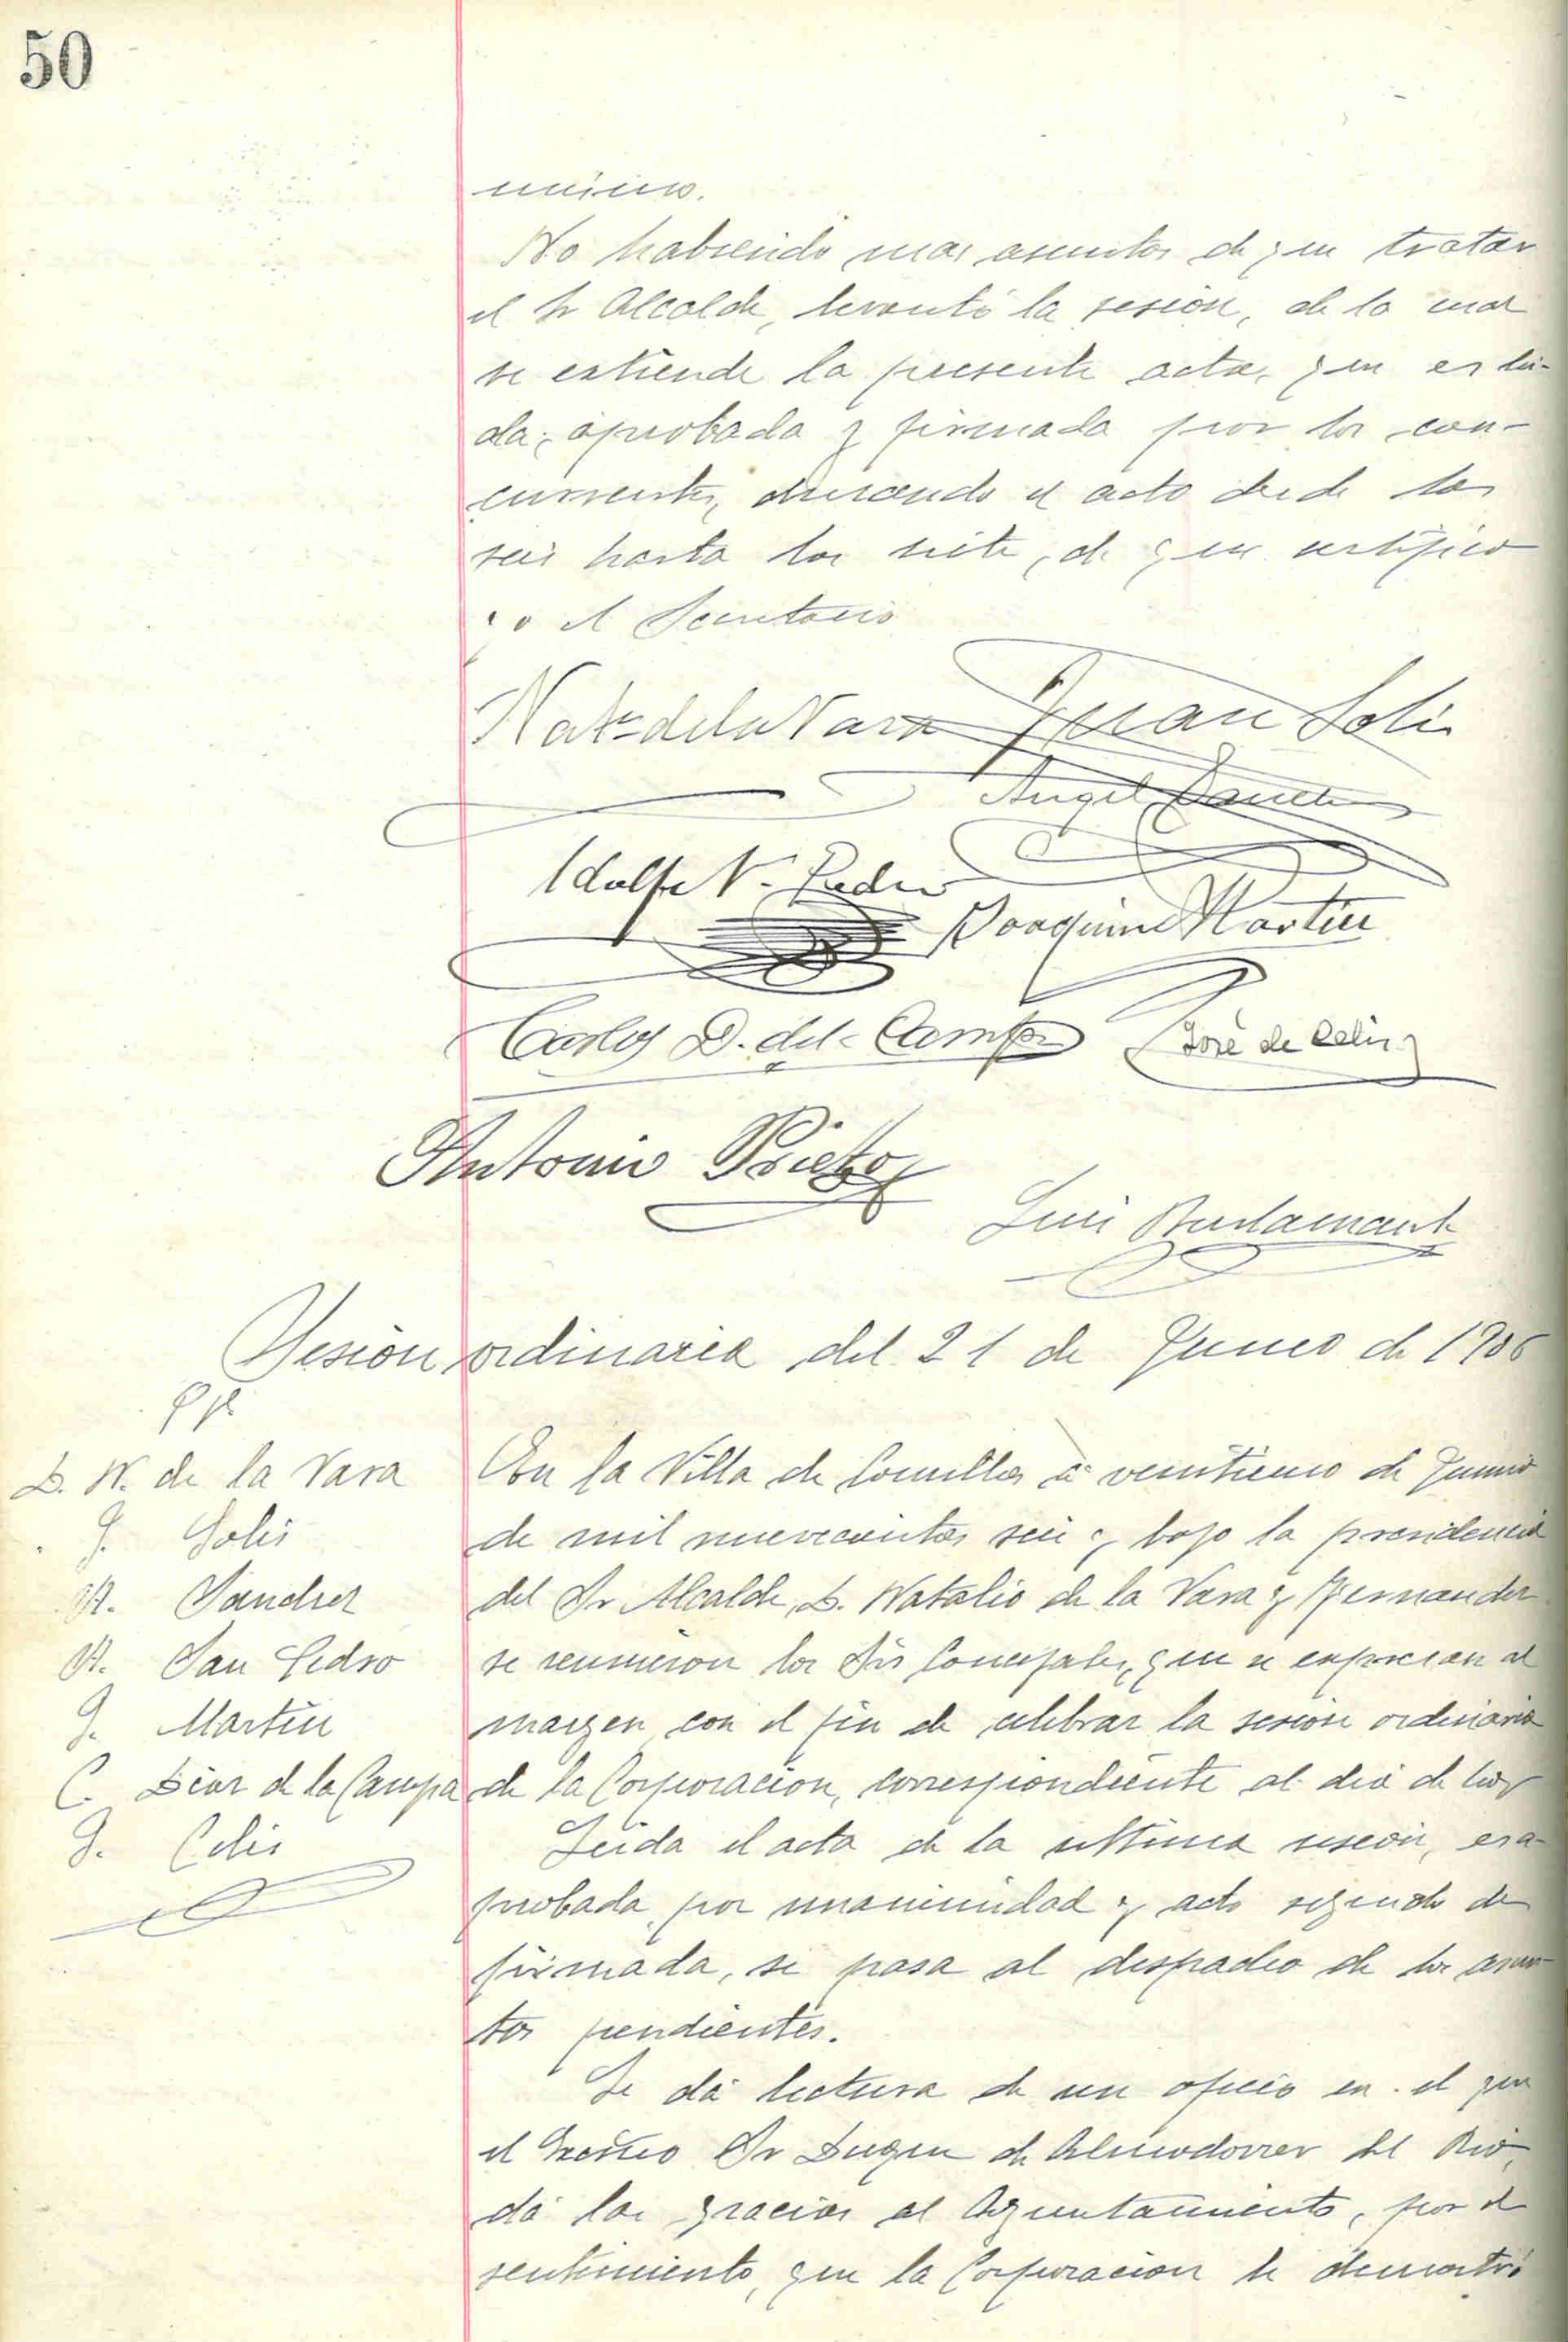 50
No habiendo mas asuntos de que tratar
el Sr Alcalde, levantó la sesión, de la cual
se extiende la presente acta, que es lei-
da, aprobada y firmada por los con-
currentes, durando el acto desde las
seis hasta las siete, de que certifico
yo el Secretario
Nat. de la Vara Juan Solis
Angel Sanchez
Adolfo V. Pedro
Joaquin Martin
Carlos D. de la Campa José de Celis
Antonio Prieto
Luis Bustamante
Sesion ordinaria del 21 de Junio de 1906
D. N. de la Vara
J. Solis
A. Sanchez
A. San Pedro
J. Martin
C. Diaz de la Campa
J. Celis
En la Villa de Comillas á veintiuno de Junio
de mil novecientos seis y bajo la presidencia
del Sr Alcalde, D. Natalio de la Vara y Fernandez
se reunieron los Srs Concejales, que se expresan al
margen con el fin de celebrar la sesion ordinaria
de la Corporacion, correspondiente al dia de hoy
Leida el acta de la ultima sesion, es a-
probada, por unanimidad y acto seguido de
firmada, se pasa al despacho de los asun-
tos pendientes.
Se dá lectura de un oficio en el que
el Excmo Sr Duque de Almodovar del Rio,
dá las gracias al Ayuntamiento, por el
sentimiento, que la Corporacion le demostró